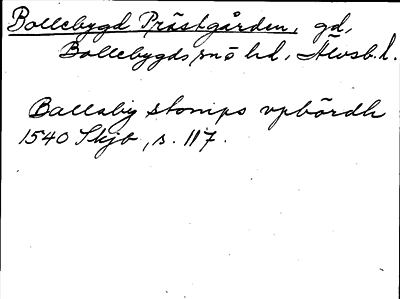 Bollebygd Prästgården, gd,
Bollebygds snö hd, Älvsb. l.
Ballaby stomps vpbördh
1540 Skjb, s. 117.